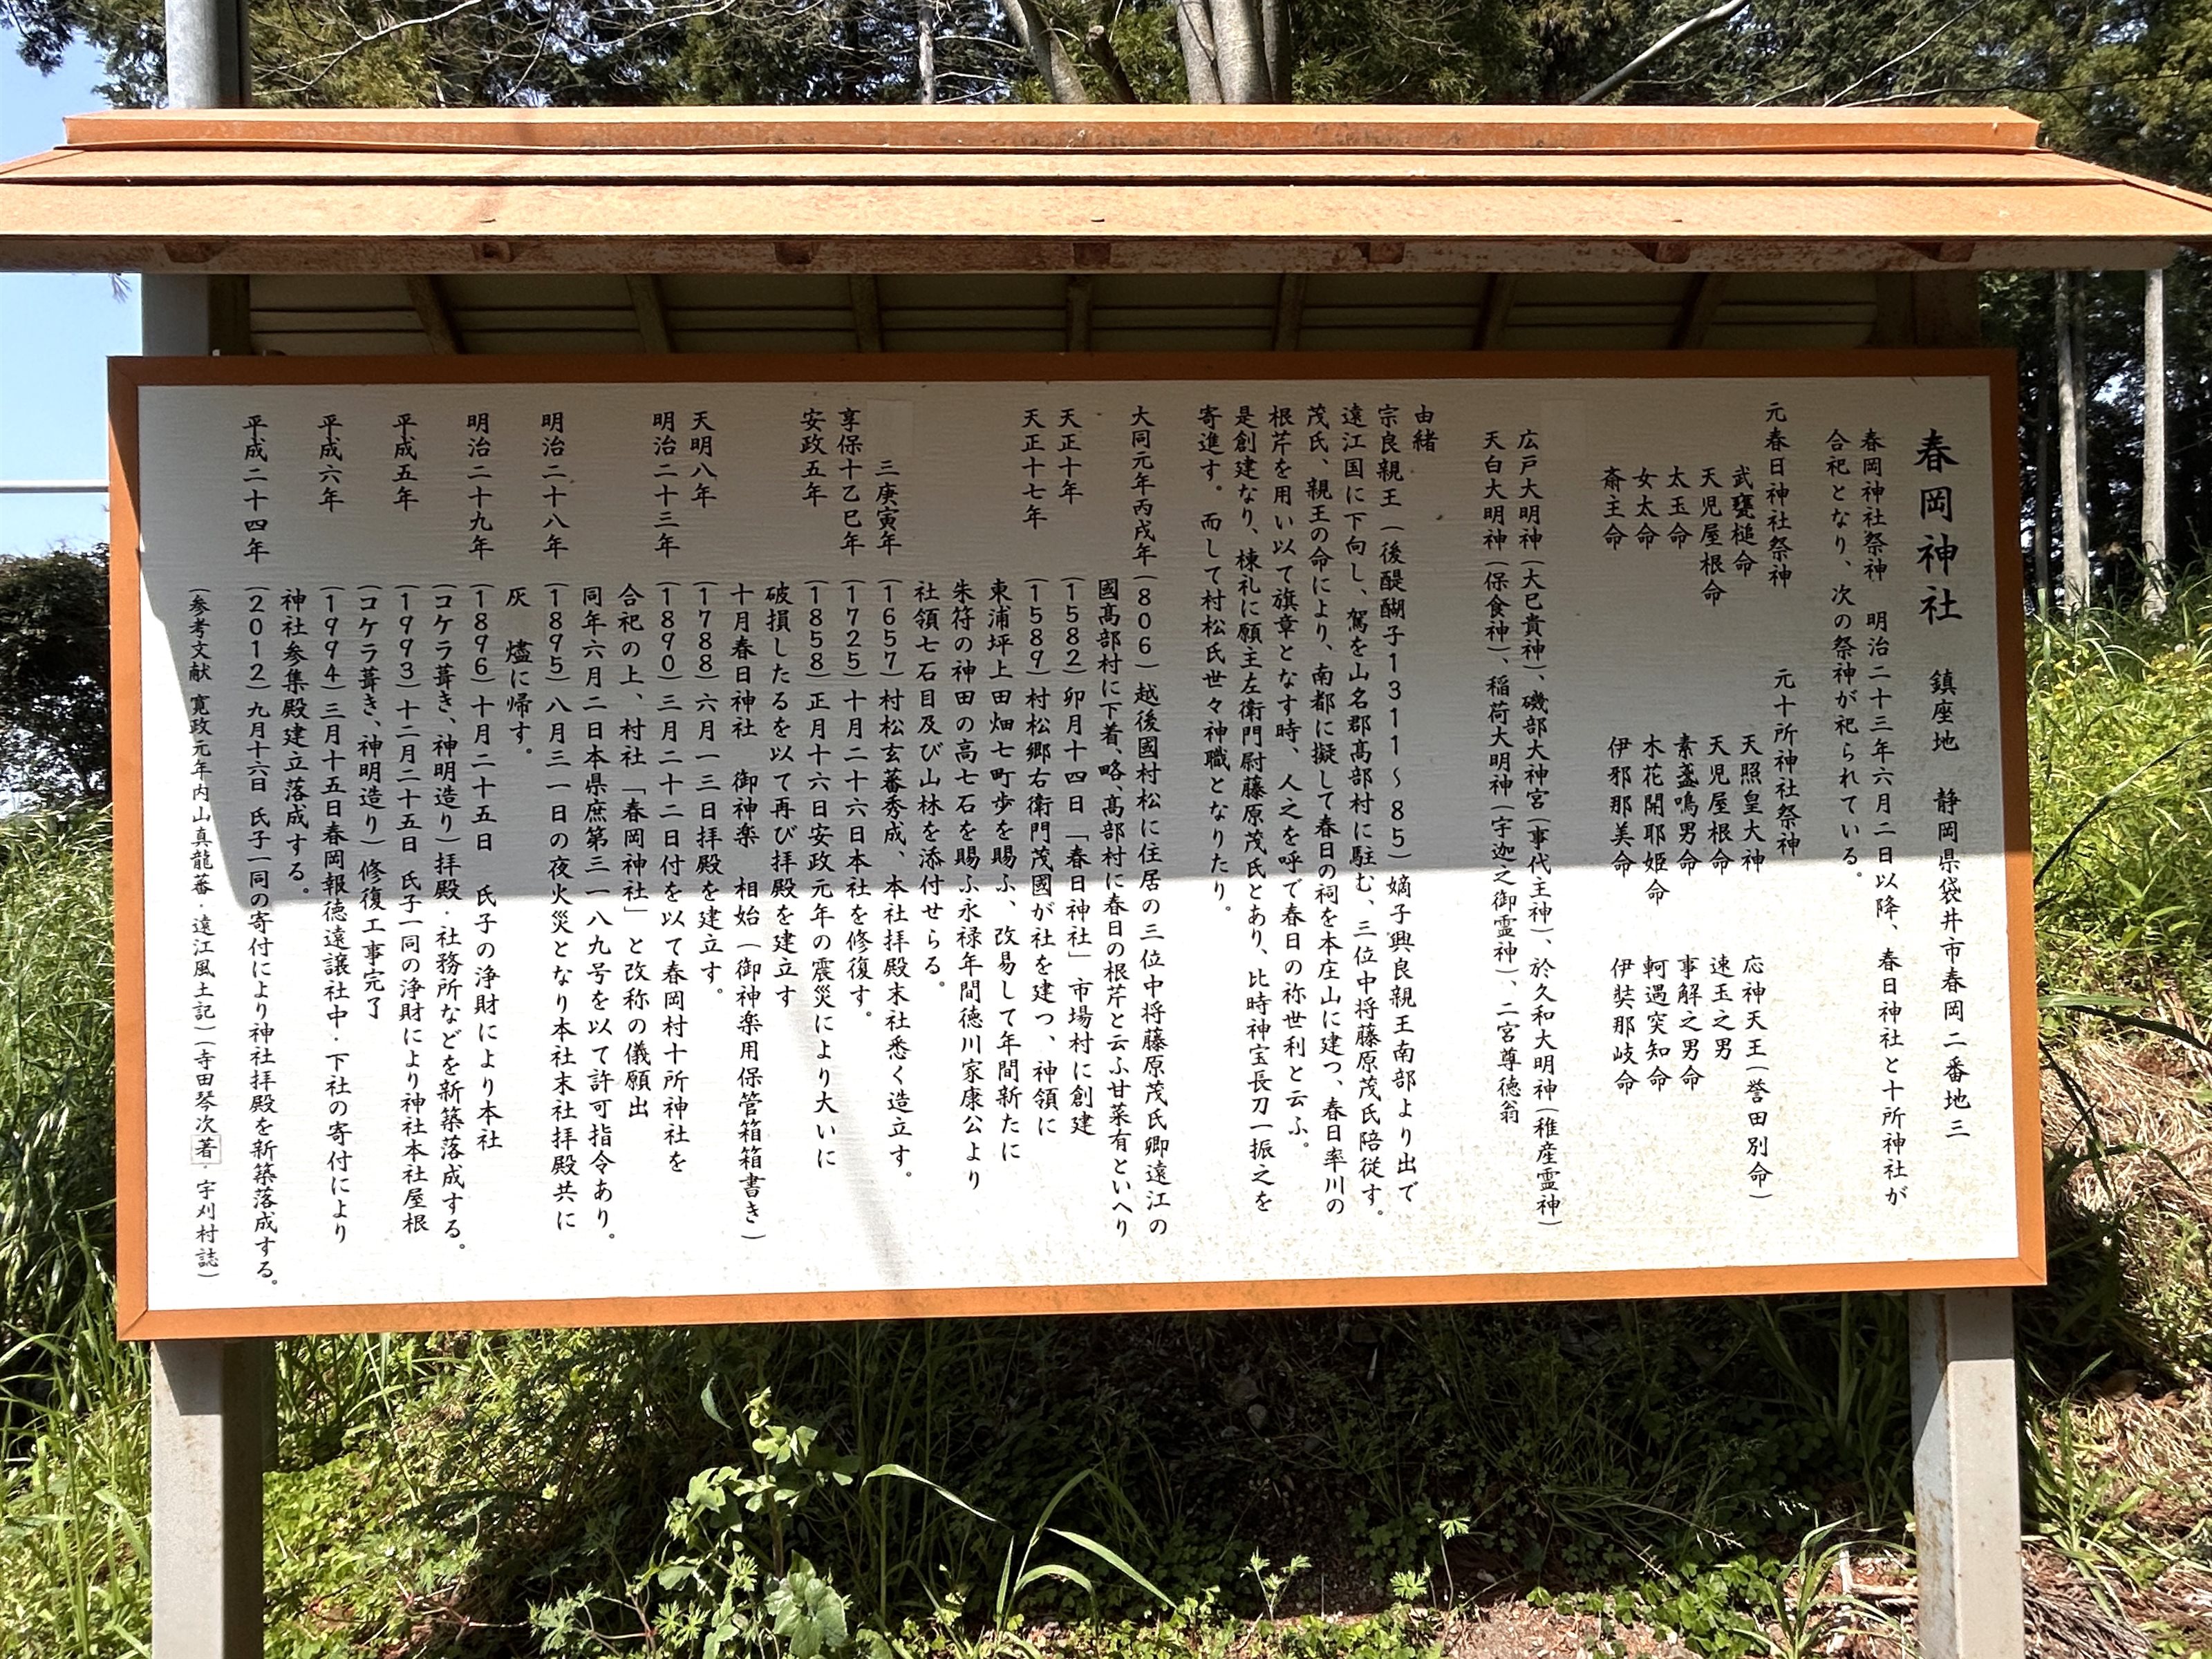 春岡神社　鎮座地　静岡県袋井市春岡二番地三
春岡神社祭神　明治二十三年六月二日以降、春日神社と十所神社が
合祀となり、次の祭神が祀られている。
元春日神社祭神
武甕槌命
天児屋根命
太玉命
女太命
斎主命
元十所神社祭神
天照皇大神　応神天王(誉田別命)
天児屋根命　速玉之男
素盞鳴男命　事解之男命
木花開耶姫命　軻遇突知命
伊邪那美命　伊弉那岐命
広戸大明神(大巳貴神)、磯部大神宮(事代王神)、於久和大明神(稚産霊神)
天白大明神(保食神)、稲荷大明神(宇迦之御霊神)、二宮尊徳翁
由緒
宗良親王(後醍醐子1311～85)嫡子興良親王南部より出で
遠江国に下向し、駕を山名郡髙部村に駐む、三位中将藤原茂氏陪従す。
茂氏、親王の命により、南都に擬して春日の祠を本庄山に建つ、春日率川の
根芹を用い以て旗章となす時、人之を呼で春日の祢世利と云ふ。
是創建なり、棟札に願主左衛門尉藤原茂氏とあり、比時神宝長刀一振之を
寄進す。而して村松氏世々神職となりたり。
大同元年丙戌年(806)越後國村松に住居の三位中将藤原茂氏卿遠江の
國髙部村に下着、略、髙部村に春日の根芹と云ふ甘菜有といへり
天正十年(1582)卯月十四日「春日神社」市場村に創建
天正十七年(1589)村松郷右衛門茂國が社を建つ、神領に
東浦坪上田畑七町歩を賜ふ、改易して年間新たに
朱符の神田の高七石を賜ふ永禄年間徳川家康公より
社領七石目及び山林を添付せらる。
三庚寅年(1657)村松玄蕃秀成、本社拝殿末社悉く造立す。
享保十乙巳年(1725)十月二十六日本社を修復す。
安政五年(1858)正月十六日安政元年の震災により大いに
破損したるを以て再び拝殿を建立す
十月春日神社　御神楽　相始(御神楽用保管箱箱書き)
天明八年(1788)六月一三日拝殿を建立す。
明治二十三年(1890)三月二十二日付を以て春岡村十所神社を
合祀の上、村社「春岡神社」と改称の儀願出
同年六月二日本県庶第三一八九号を以て許可指令あり。
明治二十八年(1895)八月三一日の夜火災となり本社末社拝殿共に
灰　燼に帰す。
明治二十九年(1896)十月二十五日　氏子の浄財により本社
(コケラ葺き、神明造り)拝殿・社務所などを新築落成する。
平成五年(1993)十二月二十五日　氏子一同の浄財により神社本社屋根
(コケラ葺き、神明造り)修復工事完了
平成六年(1994)三月十五日春岡報徳遠譲社中・下社の寄付により
神社参集殿建立落成する。
平成二十四年(2012)九月十六日　氏子一同の寄付により神社拝殿を新築落成する。
(参考文献　寛政元年内山真龍蕃・遠江風土記)(寺田琴次著・宇刈村誌)